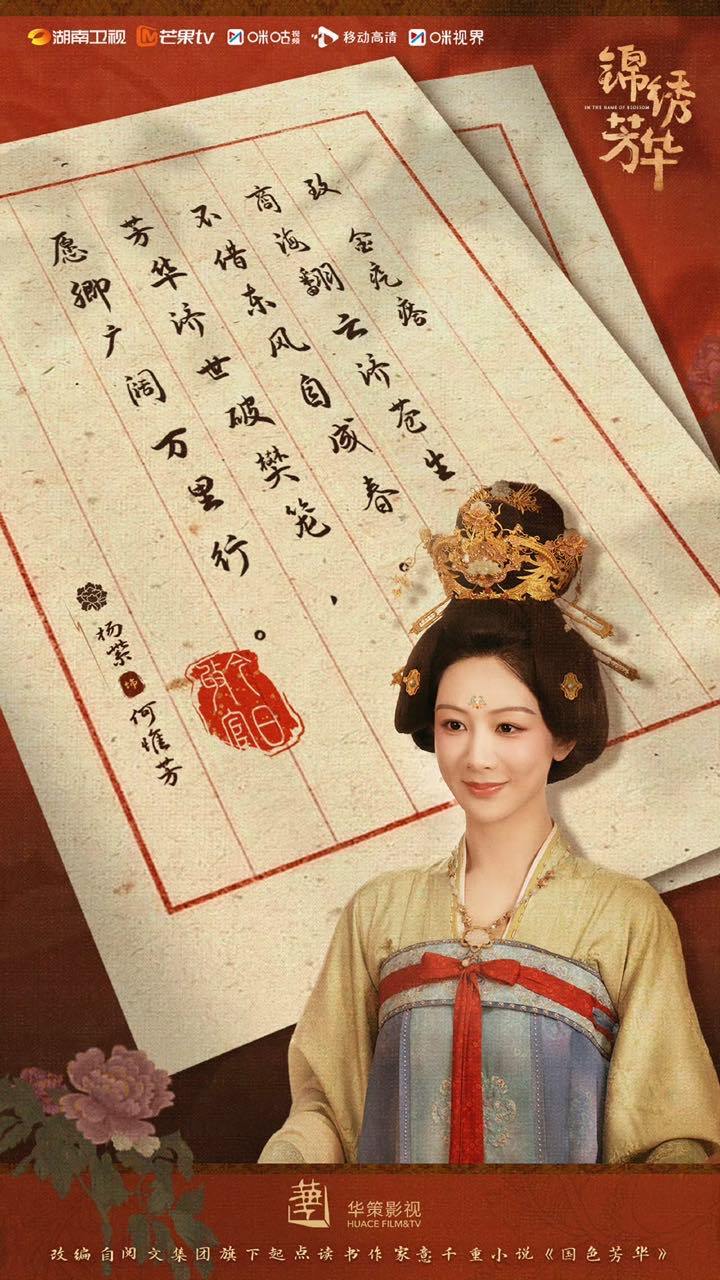 湖南卫视 芒果tv 咪咕视频 移动高清 咪视界
锦绣芳华
IN THE NAME OF BLOSSOM
致 金疙瘩
商海翻云济苍生。
不借东风自成春,
芳华济世破樊笼。
愿卿广阔万里行。
杨紫 饰 何惟芳
华策影视
HUACE FILM&TV
改编自阅文集团旗下起点读书作家意千重小说《国色芳华》